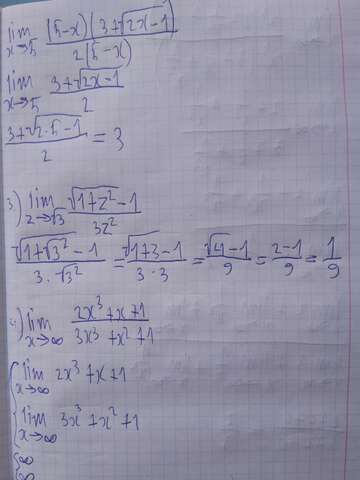 lim x→5 (5-x)(3+√(2x-1)) / 2(5-x)
lim x→5 (3+√(2x-1)) / 2
(3+√(2·5-1)) / 2 = 3
3.) lim z→√3 (√(1+z²)-1) / 3z²
(√(1+√3²)-1) / (3·√3²) = (√(1+3)-1) / (3·3) = (√4-1) / 9 = (2-1) / 9 = 1/9
4.) lim x→∞ (2x³+x+1) / (3x³+x²+1)
lim x→∞ 2x³+x+1
lim x→∞ 3x³+x²+1
∞
∞